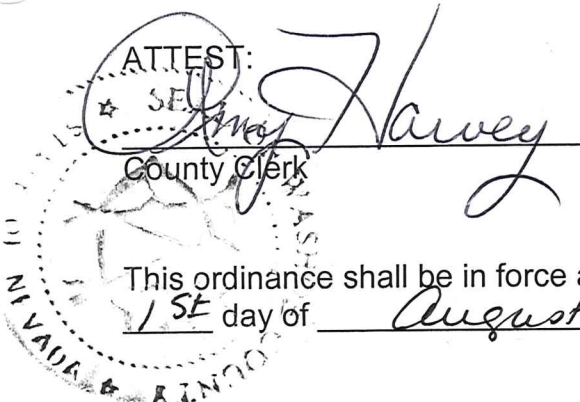 ATTEST:
Amy Harvey
County Clerk
This ordinance shall be in force a
1st day of August
SE
WAS
COUNTY
NEVADA